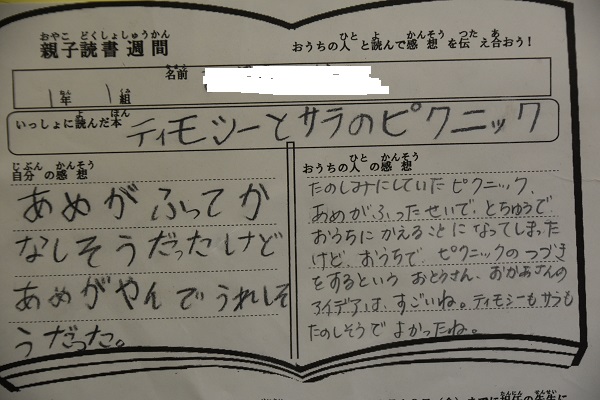 おやこ どくしょしゅうかん
親子読書週間
おうちの人と読んで感想を伝え合おう！
名前
1年 1組
いっしょに読んだ本 ティモシーとサラのピクニック
自分の感想
あめがふってか
なしそうだったけど
あめがやんでうれしそ
うだった。
おうちの人の感想
たのしみにしていたピクニック、
あめがふったせいで、とちゅうで
おうちにかえることになってしまった
けど、おうちで、ピクニックのつづき
をするという おとうさん、おかあさんの
アイデアは、すごいね。ティモシーもサラも
たのしそうでよかったね。